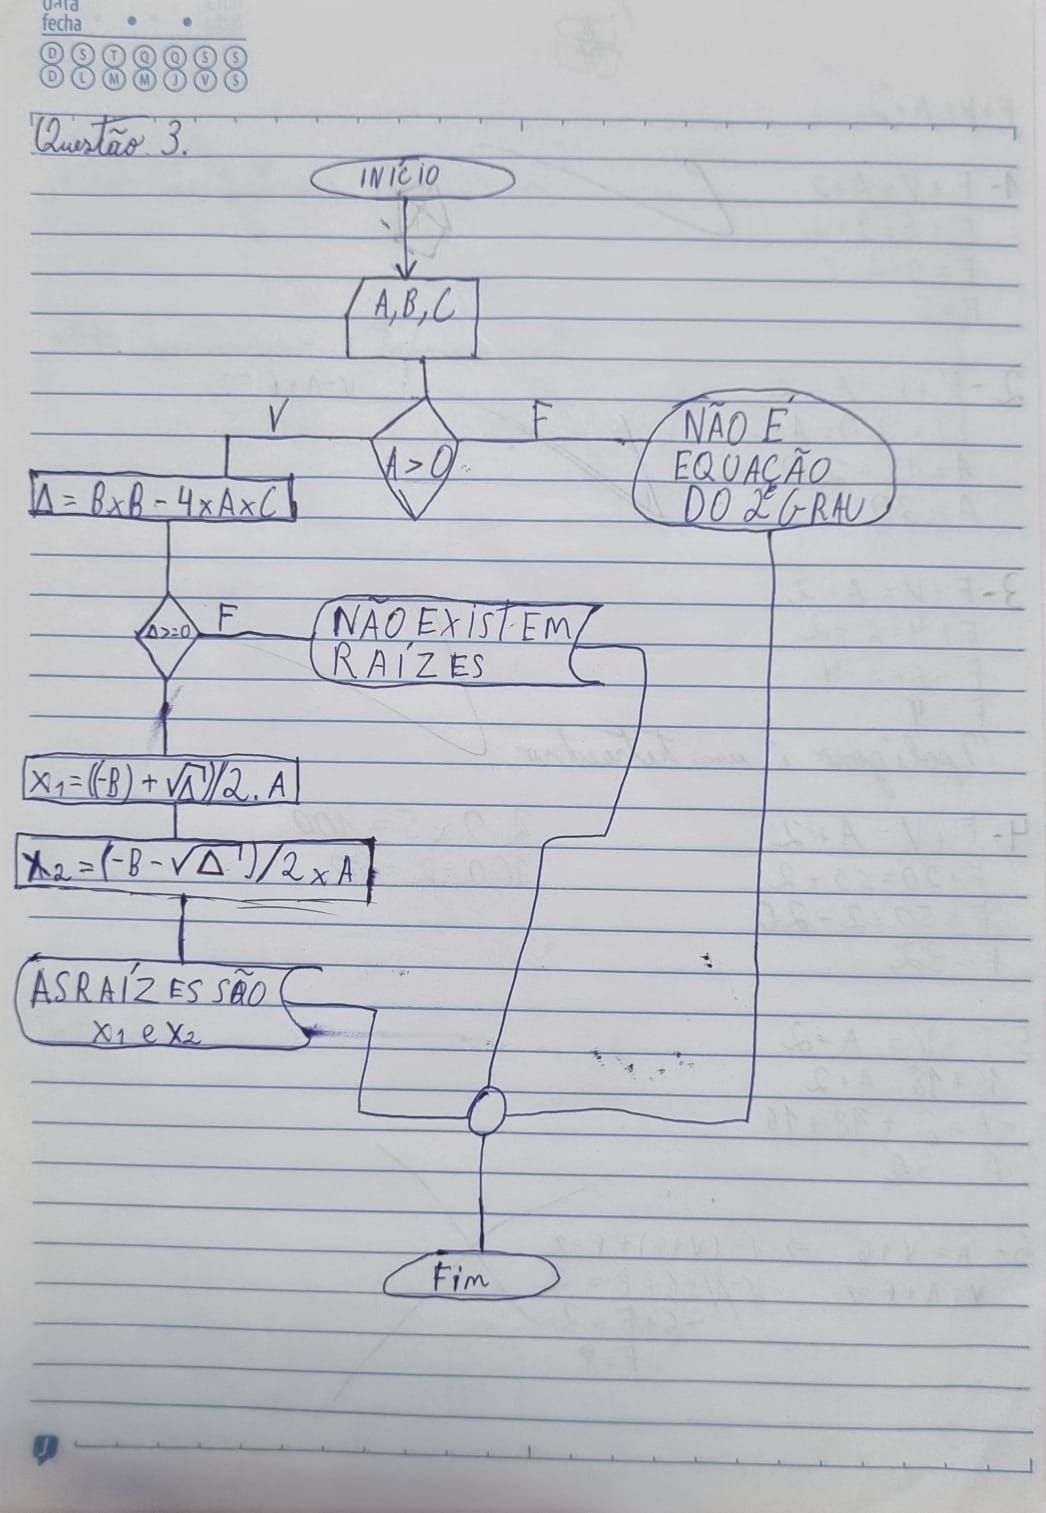 data
fecha
D S T Q Q S S
D L M M J V S
Questão 3.
INÍCIO
A, B, C
V
A > 0
F
NÃO É
EQUAÇÃO
DO 2º GRAU
Δ = B x B - 4 x A x C
Δ>=0
F
NÃO EXISTEM
RAÍZES
X1 = ((-B) + √Δ)/2. A
X2 = (-B - √Δ)/2 x A
AS RAÍZES SÃO
X1 e X2
Fim